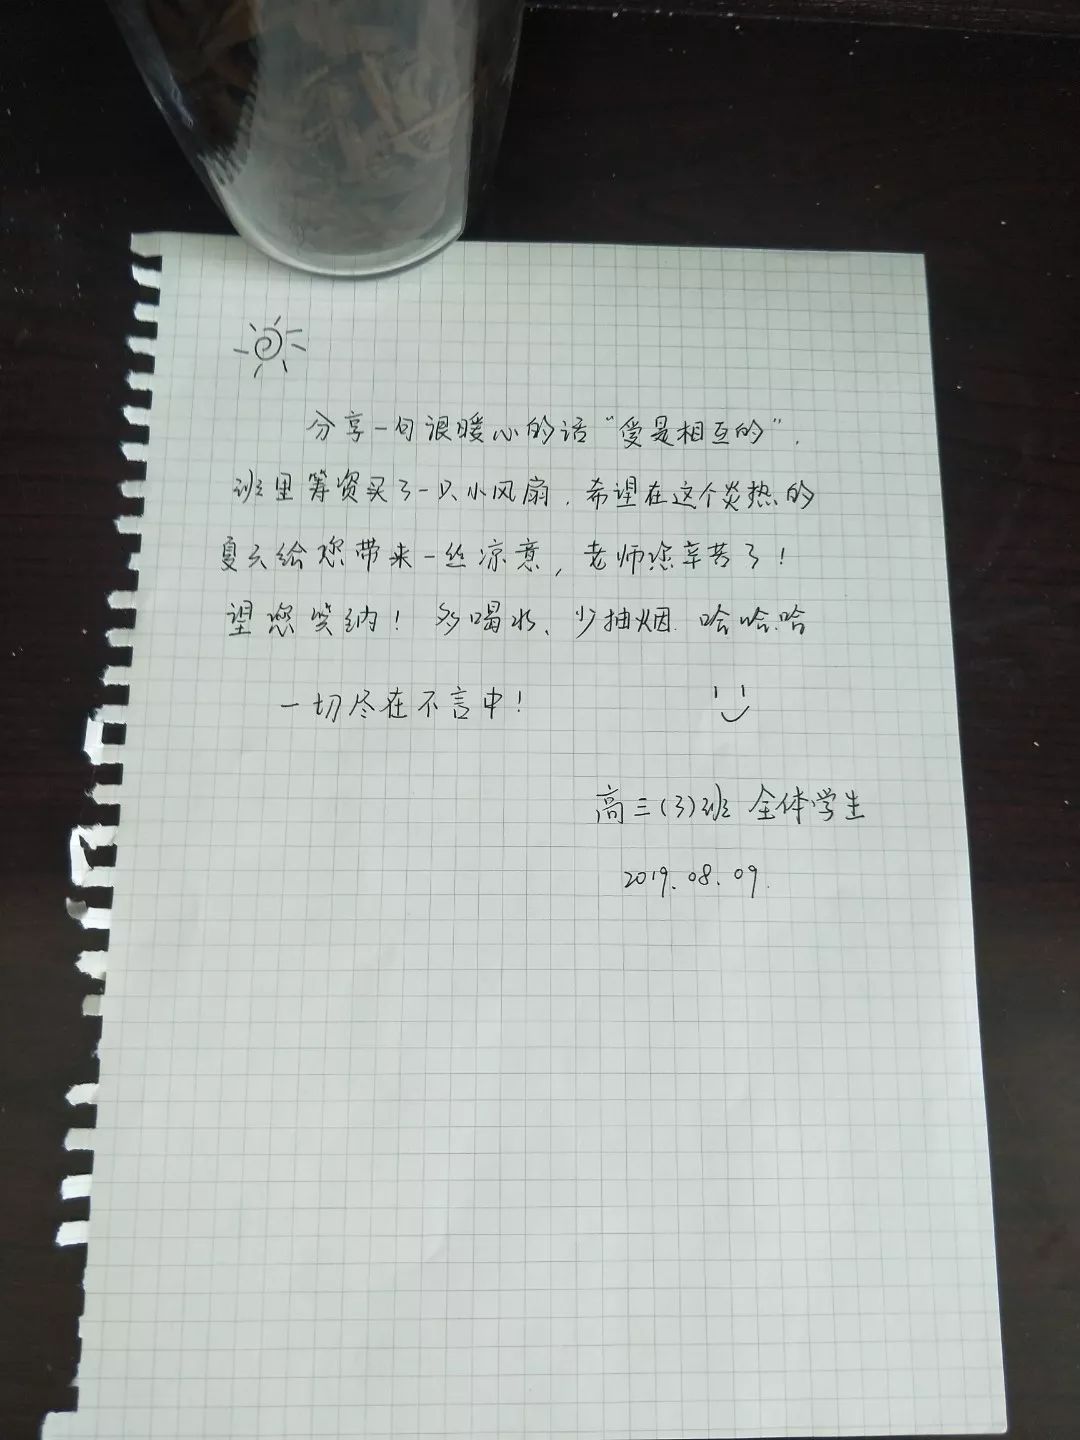 分享一句很暖心的话“爱是相互的”.
班里筹资买了一只小风扇.希望在这个炎热的
夏天给您带来一丝凉意,老师您辛苦了!
望您笑纳!多喝水、少抽烟.哈哈哈
一切尽在不言中!
高三(3)班 全体学生
2019.08.09.